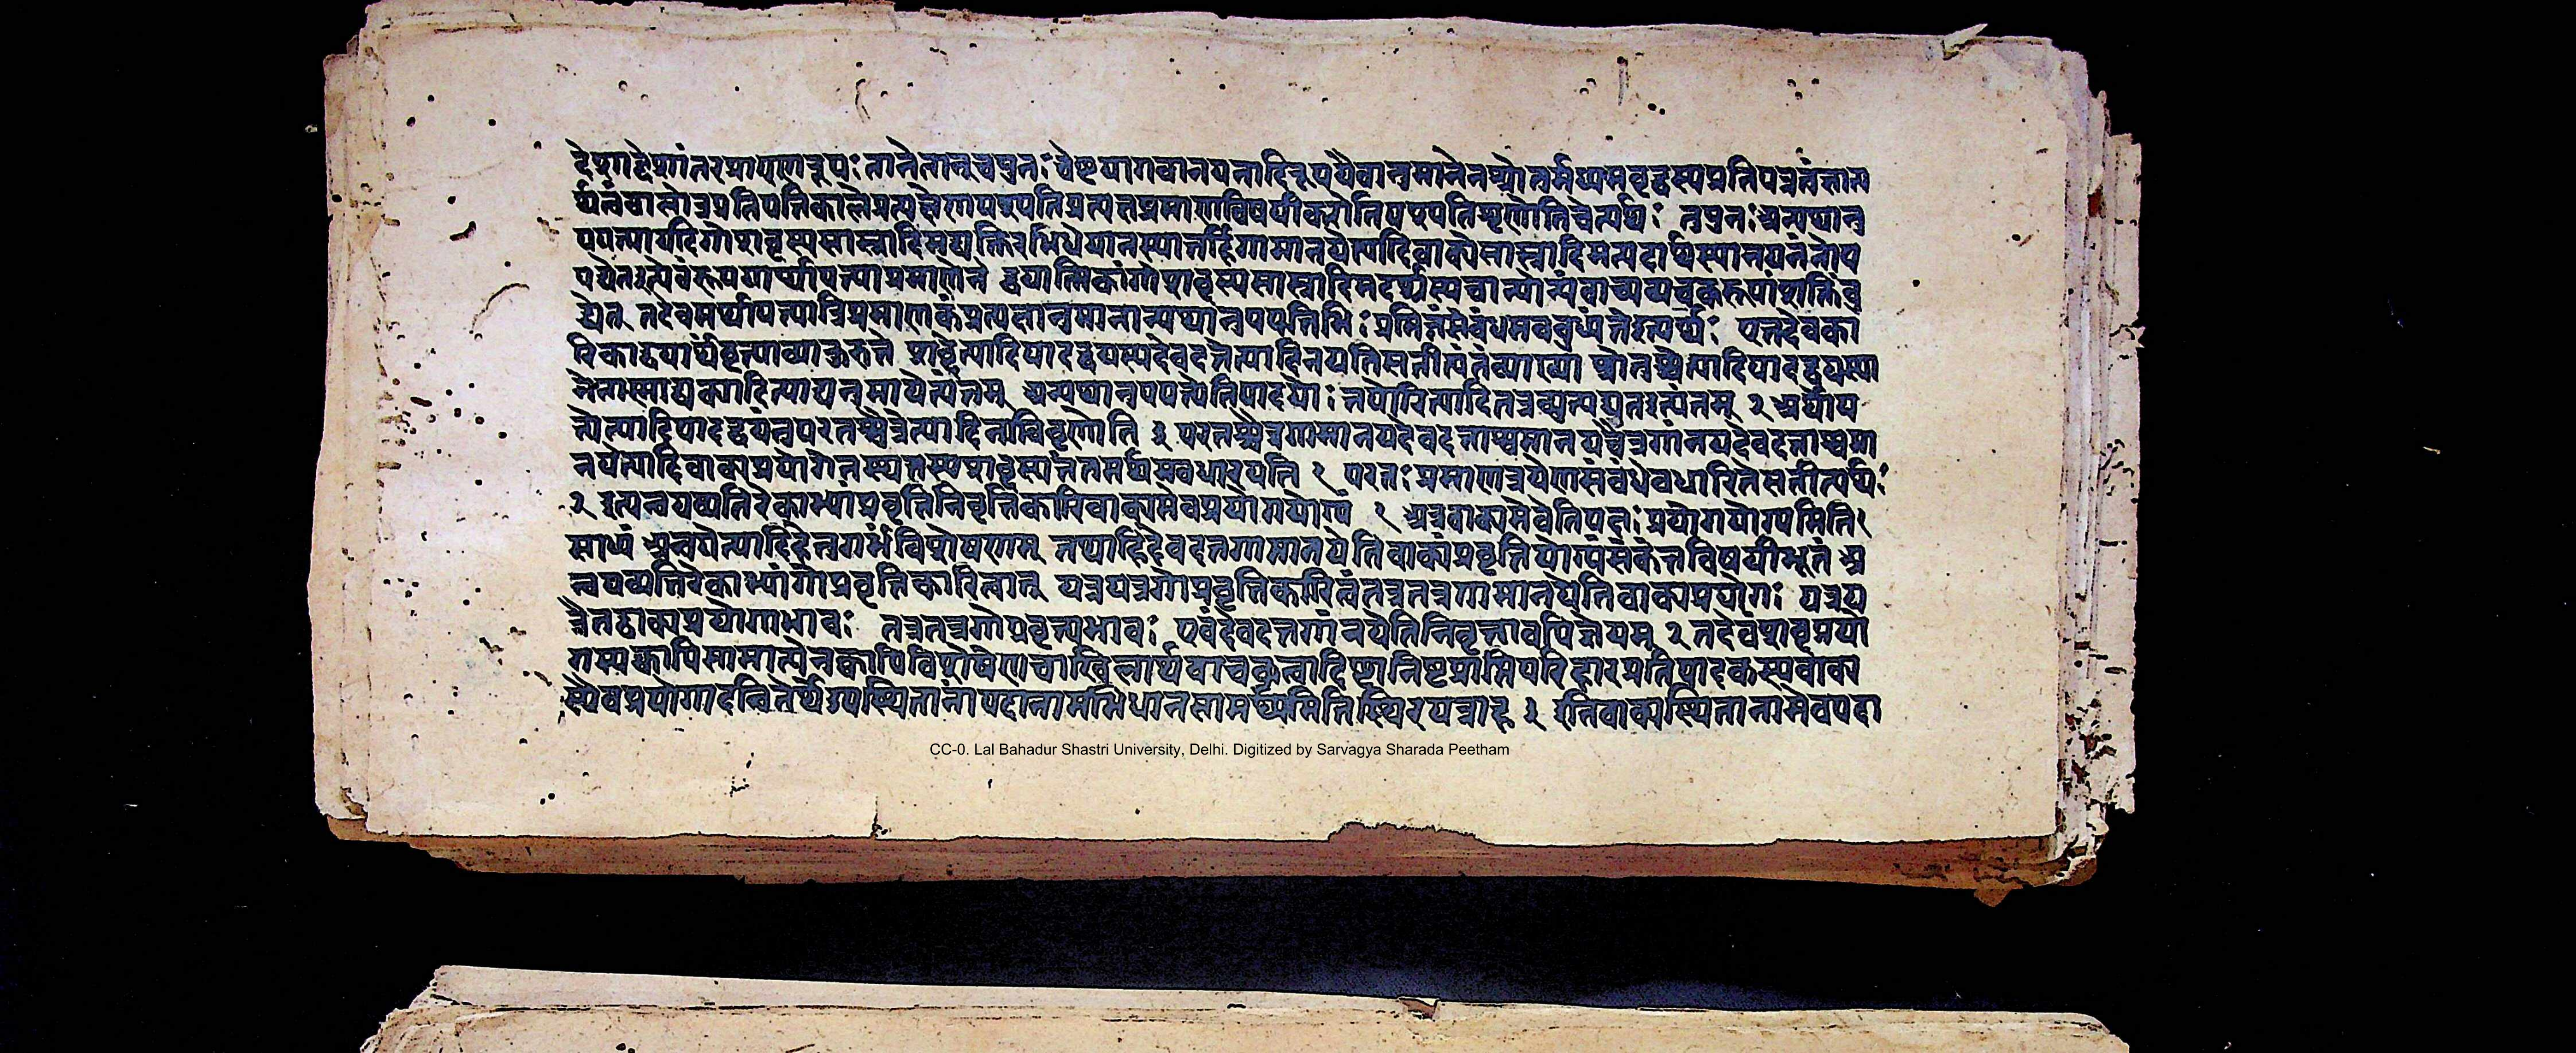 देशाद्देशांतरप्रापणरूपः तानेतानुच पुनः चेष्टया गवानयनादिरूपयैवानुमानेन श्रोतुर्मध्यमवृद्धस्य प्रतिपन्नत्वं ज्ञान
र्थत्वं बालोत्र प्रतिपत्तिकाले प्रत्यक्षेण पश्यति प्रत्यक्षप्रमाणविषयीकरोति पश्यति शृणोति चेत्यर्थः ततः पुनः अन्यथानु
पपत्त्या यदि गोशब्दस्य सास्नादिमद्व्यक्तिरभिधेया न स्यात्तर्हि गामानयेत्यादिवाक्ये सास्नादिमत्पदार्थस्यानयनं नोप
पद्येत इत्येवंरूपयार्थापत्त्या प्रमाणेन द्वयात्मिकां गोशब्दस्य सास्नादिमदर्थस्य चान्योन्यं वाच्यवाचकरूपां शक्तिं बु
द्ध्येत् तदेवमर्थापत्त्या त्रिप्रमाणकं प्रत्यक्षानुमानान्यथानुपपत्तिभिः प्रमितं संबंधमवबुध्यंते इत्यर्थः एतदेव का
रिकाद्वयार्थं वृत्त्या व्याकुरुते शब्देत्यादिपादद्वयस्य देवदत्तेत्यादिनयति सतीत्यंतं व्याख्या श्रोतुश्चेत्यादिपादद्वयस्या
नेनास्माद्वाक्यादित्याद्यनुमायेत्यंतम् अन्यथानुपपत्त्येति पादयोः तयोरित्यादि तत्र व्युत्पद्यत इत्यंतम् २ अर्थाप
त्त्येत्यादिपादद्वयं तु परतश्चैत्रेत्यादिना विवृणोति ३ परतश्चैत्र गामानय देवदत्ताश्वमानय चैत्र गां नय देवदत्ताश्वमा
नयेत्यादिवाक्यप्रयोगे तस्य तस्य शब्दस्य तं तमर्थमवधारयति १ परतः प्रमाणत्रयेण संबंधेवधारिते सतीत्यर्थः
२ इत्यन्वयव्यतिरेकाभ्यां प्रवृत्तिनिवृत्तिकारि वाक्यमेव प्रयोगयोग्यं १ अत्र वाक्यमेवेति पक्षः प्रयोगयोग्यमिति १
साध्यं अन्वयेत्यादि हेतुगर्भं विशेषणम् तथाहि देवदत्त गामानयेति वाक्यं प्रवृत्तियोग्यं संकेतविषयीभूतं अ
न्वयव्यतिरेकाभ्यां गोप्रवृत्तिकारित्वात् यत्र यत्र गोप्रवृत्तिकारित्वं तत्र तत्र गामानयेति वाक्यप्रयोगः यत्र य
त्रैतद्वाक्यप्रयोगाभावः तत्र तत्र गोप्रवृत्त्यभावः एवं देवदत्त गां नयेति निवृत्तावपि ज्ञेयम् २ तदेवं शब्दप्रयो
गस्य क्वापि सामान्येन क्वापि विशेषेण चाखिलार्थवाचकत्वादिष्टानिष्टप्राप्तिपरिहारप्रतिपादकस्य वाक्य
स्यैव प्रयोगादन्वितेर्थे उपस्थितानां पदानामभिधानसामर्थ्यमिति स्थिरयन्नाह ३ इति वाक्यस्थितानामेव पदा
CC-0. Lal Bahadur Shastri University, Delhi. Digitized by Sarvagya Sharada Peetham